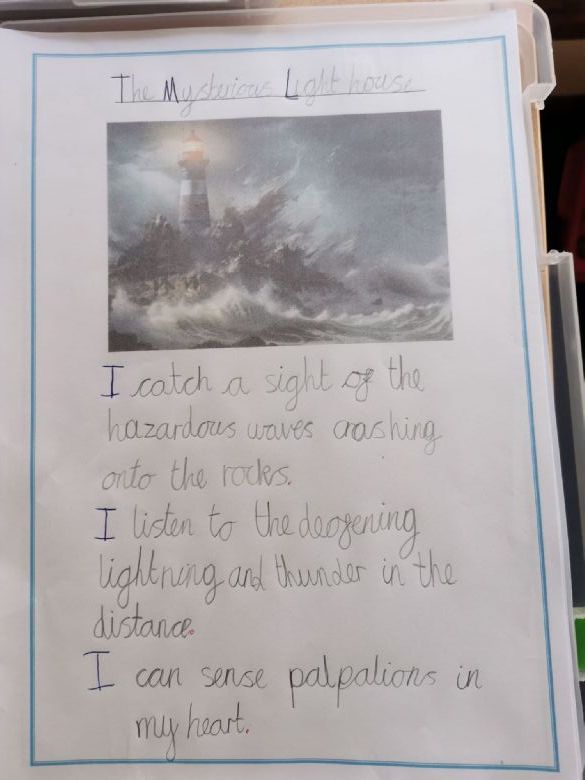 The Mysterious Light house
I catch a sight of the
hazardous waves crashing
onto the rocks.
I listen to the deofening
lightning and thunder in the
distance.
I can sense palpalions in
my heart.